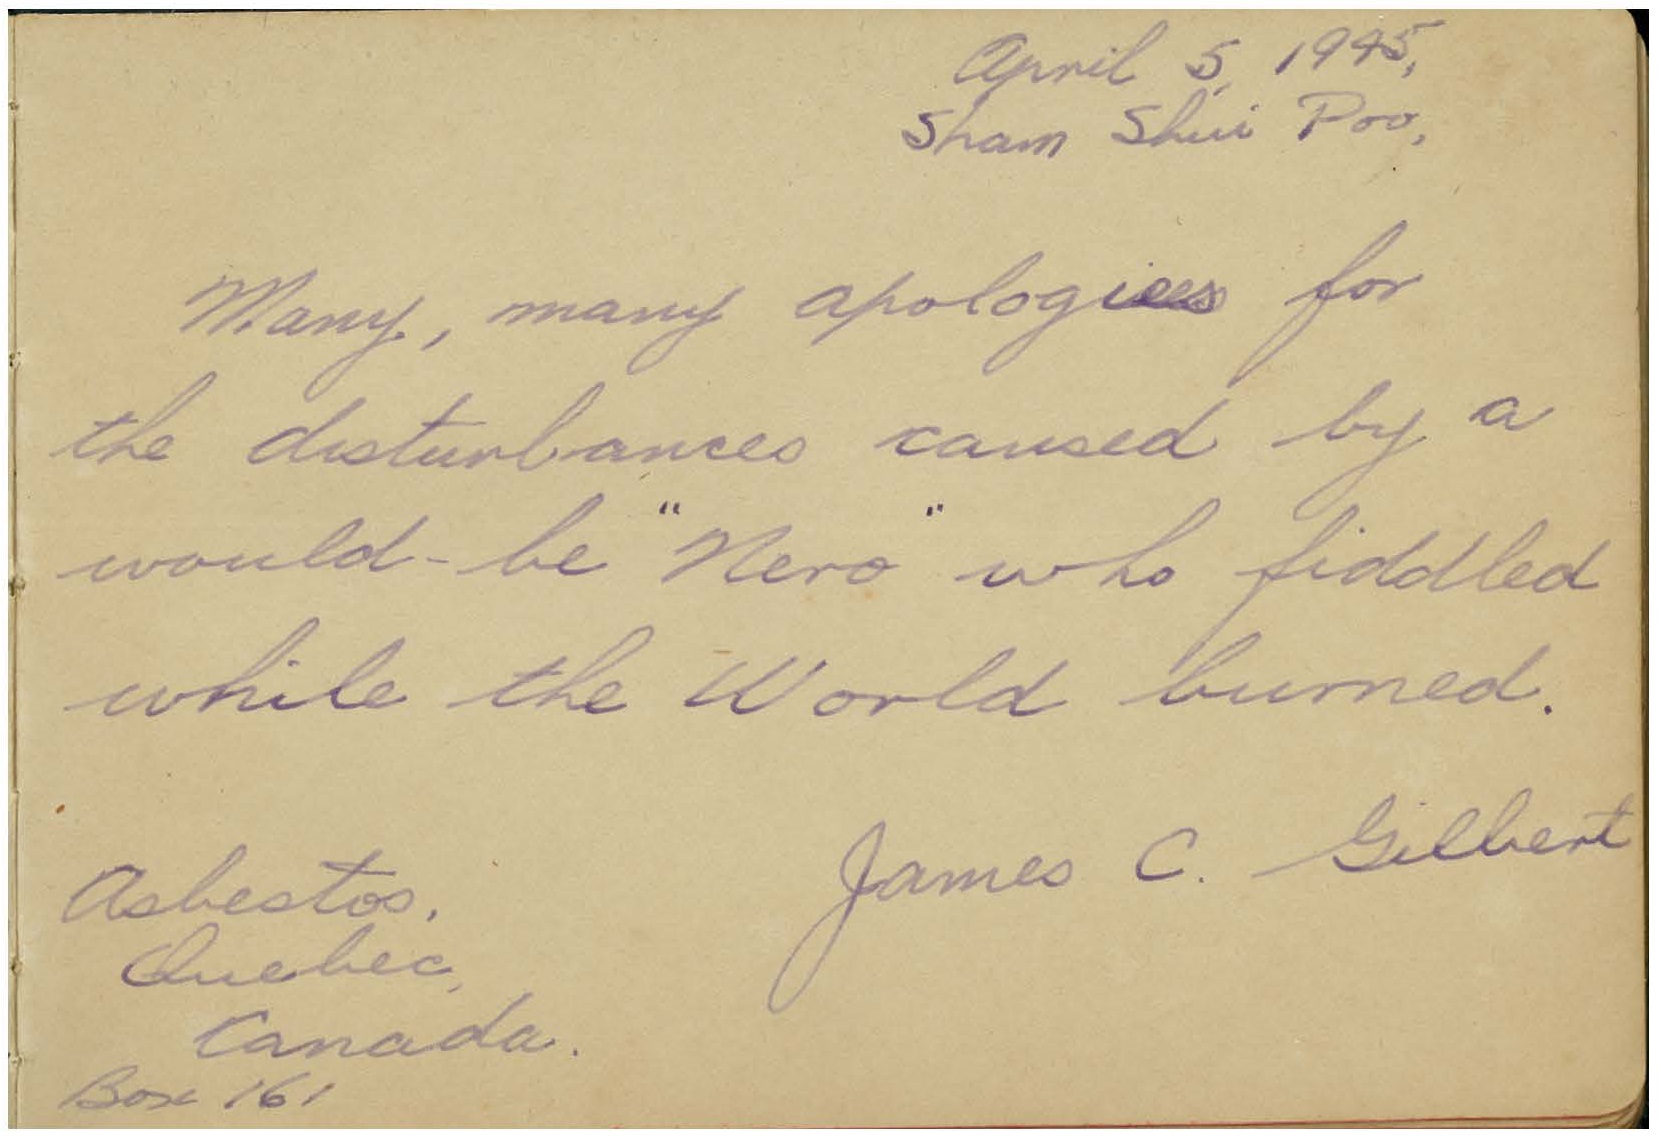 April 5, 1945,
Sham Shui Poo,
Many, many apologies for
the disturbances caused by a
would-be "Nero" who fiddled
while the World burned.
James C. Gilbert
Asbestos,
Quebec,
Canada.
Box 161